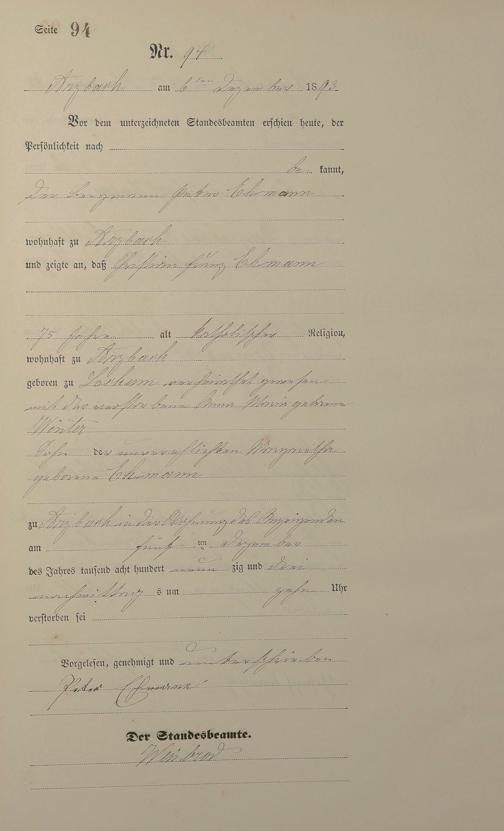 Seite 94
Nr. 94
Arzbach am 6ten Dezember 1893.
Vor dem unterzeichneten Standesbeamten erschien heute, der
Persönlichkeit nach
be kannt,
der Bergmann Peter Ehmann
wohnhaft zu Arzbach
und zeigte an, daß Ehmann
75 Jahre alt katholischer Religion,
wohnhaft zu Arzbach
geboren zu verheirathet gewesen
mit der verstorbene Anna Maria geborene
Winter
Sohn der unverehelichten Margaretha
geborene Ehmann
zu Arzbach in der Wohnung des Anzeigenden
am fünf ten Dezember
des Jahres tausend acht hundert neun zig und drei
nachmittag s um zehn Uhr
verstorben sei
Vorgelesen, genehmigt und unterschrieben
Peter Ehmann
Der Standesbeamte.